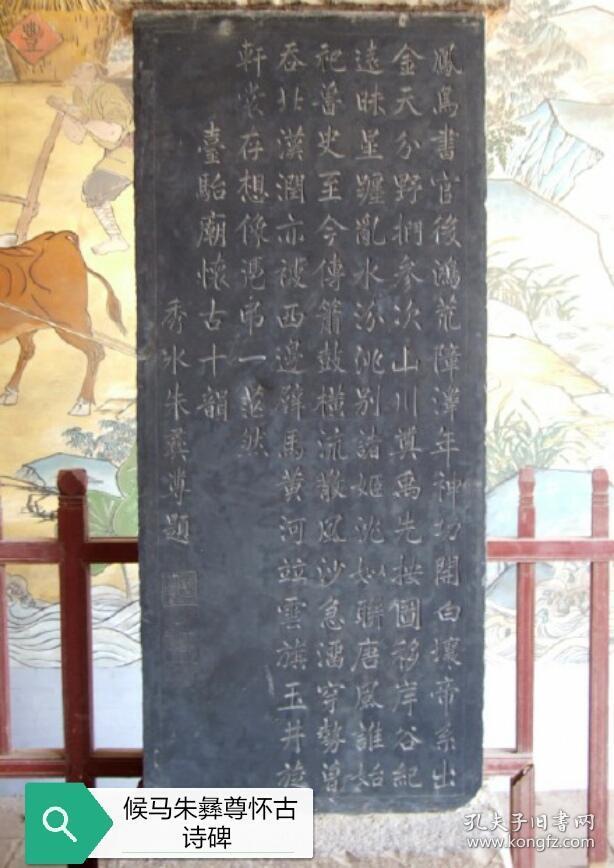 豐
鳳鳥書官後鴻荒障澤年神功開白壤帝系出
金天分野捫参次山川奠禹先按圖移岸谷紀
遠昧星躔亂水汾洮別諸姬沈姒聯唐風誰始
祀魯史至今傳簫鼓橫流散風沙急溜穿勢曾
吞北漢潤亦被西邊辟馬黄河竝雲旗玉井旋
軒裳存想像憑弔一茫然
臺駘廟懷古十韻
秀水朱彝尊題
候马朱彝尊怀古
诗碑
孔夫子旧书网
www.kongfz.com